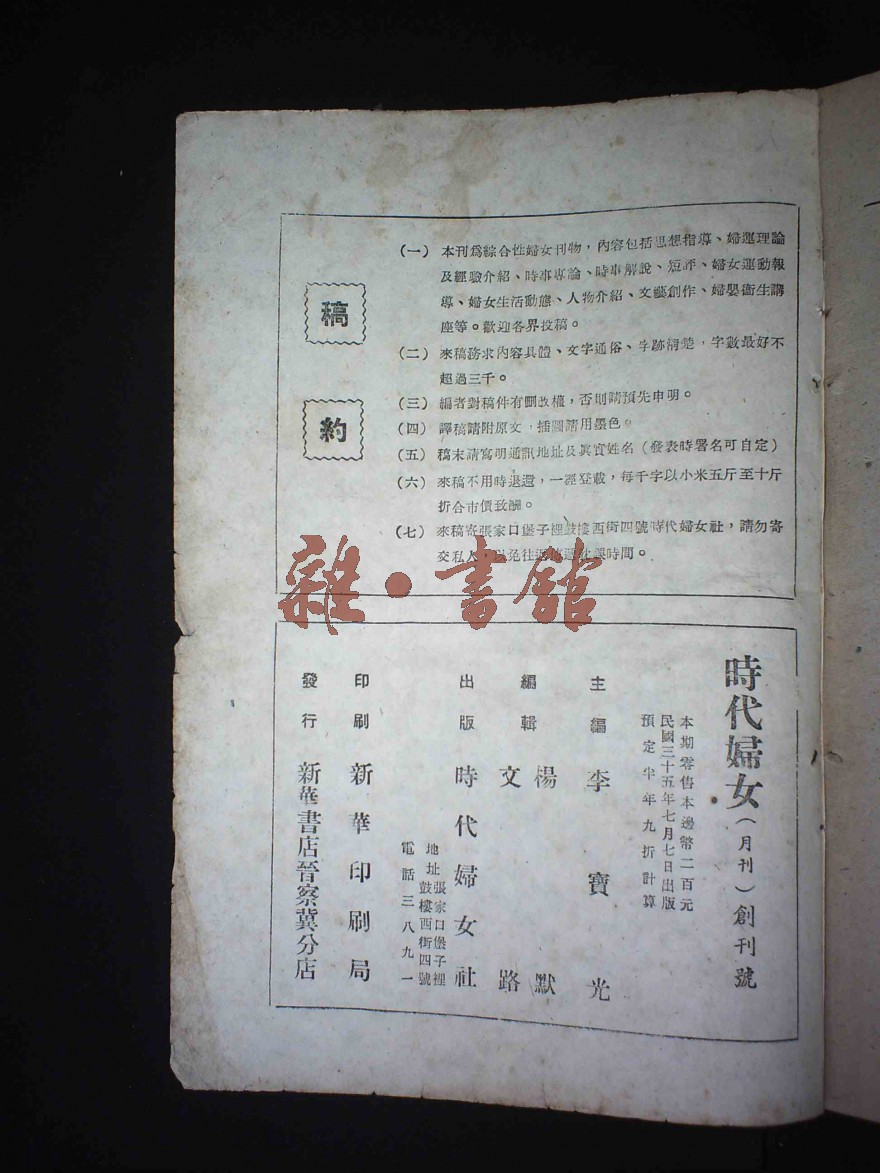 稿約
(一) 本刊爲綜合性婦女刊物,內容包括思想指導、婦運理論
及經驗介紹、時事專論、時事解說、短評、婦女運動報
導、婦女生活動態、人物介紹、文藝創作、婦嬰衞生講
座等。歡迎各界投稿。
(二) 來稿務求內容具體、文字通俗、字跡清楚,字數最好不
超過三千。
(三) 編者對稿件有刪改權,否則請預先申明。
(四) 譯稿請附原文,插圖請用墨色。
(五) 稿末請寫明通訊地址及眞實姓名(發表時署名可自定)
(六) 來稿不用時退還,一經登載,每千字以小米五斤至十斤
折合市價致酬。
(七) 來稿寄張家口堡子裡鼓樓西街四號時代婦女社,請勿寄
交私人,以免往返 時間。
雜·書館
時代婦女(月刊)創刊號
本期零售本邊幣二百元
民國三十五年七月七日出版
預定半年九折計算
主編 李寶光
編輯 楊默
文路
出版 時代婦女社
地址張家口堡子裡
鼓樓西街四號
電話三八九一
印刷 新華印刷局
發行 新華書店晉察冀分店